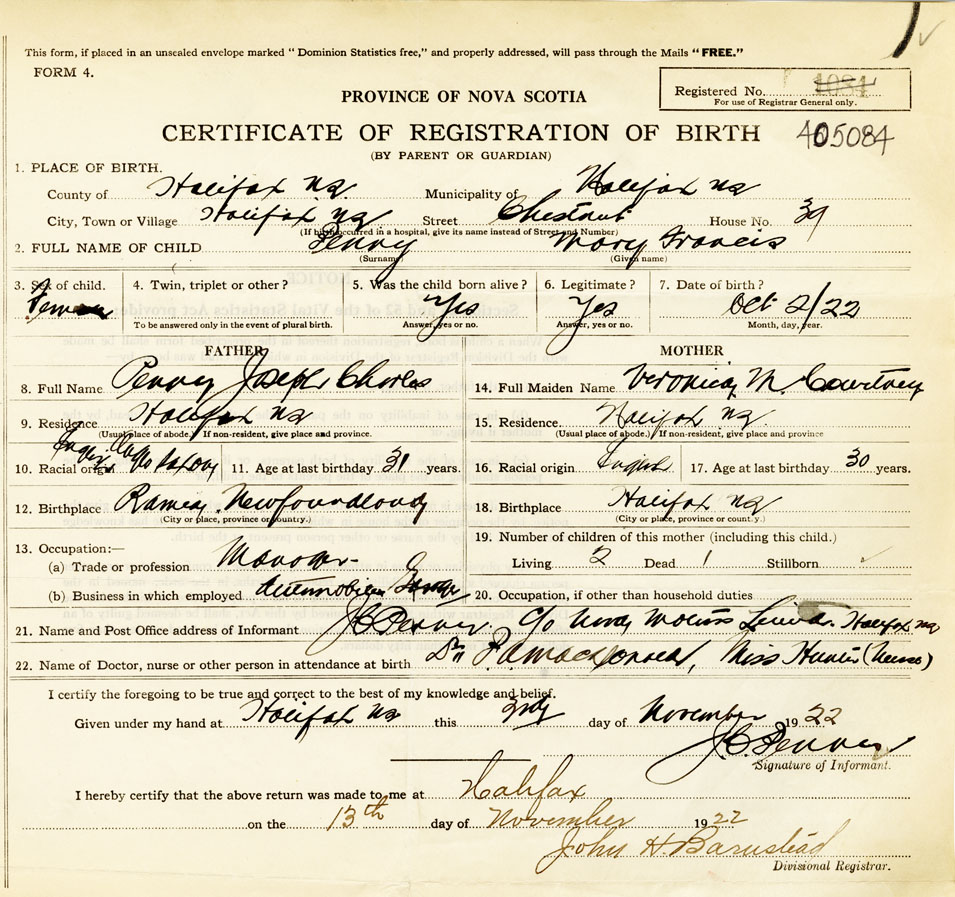 This form, if placed in an unsealed envelope marked "Dominion Statistics free," and properly addressed, will pass through the Mails "FREE."
FORM 4.
Registered No. 1084
For use of Registrar General only.
PROVINCE OF NOVA SCOTIA
CERTIFICATE OF REGISTRATION OF BIRTH 405084
(BY PARENT OR GUARDIAN)
1. PLACE OF BIRTH.
County of Halifax NS Municipality of Halifax NS
City, Town or Village Halifax NS Street Chestnut House No. 39
(If birth occurred in a hospital, give its name instead of Street and Number)
2. FULL NAME OF CHILD Penny Mary Francis
(Surname) (Given name)
3. Sex of child. 4. Twin, triplet or other? 5. Was the child born alive? 6. Legitimate? 7. Date of birth?
Female Yes Yes Oct 2/22
To be answered only in the event of plural birth. Answer, yes or no. Answer, yes or no. Month, day, year.
FATHER MOTHER
8. Full Name Penny Joseph Charles 14. Full Maiden Name Veronica M. Courtney
9. Residence Halifax NS 15. Residence. Halifax NS.
(Usual place of abode.) If non-resident, give place and province. (Usual place of abode.) If non-resident, give place and province
10. Racial origin 11. Age at last birthday 31 years. 16. Racial origin English 17. Age at last birthday 30 years.
12. Birthplace Ramea, Newfoundland 18. Birthplace Halifax NS
(City or place, province or country.) (City or place, province or country.)
13. Occupation:— 19. Number of children of this mother (including this child.)
(a) Trade or profession Manager Living 2 Dead 1 Stillborn
(b) Business in which employed Automobile Garage 20. Occupation, if other than household duties
21. Name and Post Office address of Informant J C Penny. c/o Nova Motors Limited. Halifax NS
22. Name of Doctor, nurse or other person in attendance at birth Dr. Macdonald, Miss Hunter (Nurse)
I certify the foregoing to be true and correct to the best of my knowledge and belief.
Given under my hand at Halifax NS this 3rd day of November 1922
J C Penny
Signature of Informant.
I hereby certify that the above return was made to me at Halifax
on the 13th day of November 1922
John H. Barnstead
Divisional Registrar.